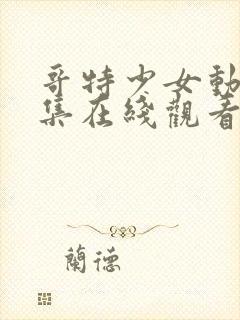 哥特少女動
集在綫觀看
蘭德